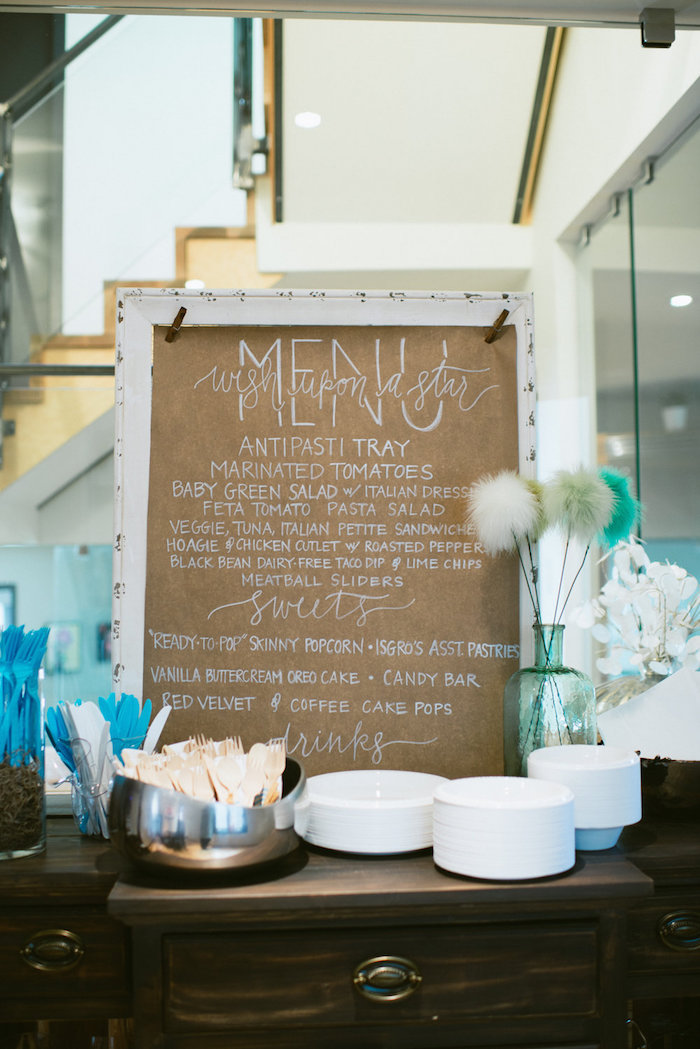 MENU
wish upon a star
ANTIPASTI TRAY
MARINATED TOMATOES
BABY GREEN SALAD W/ ITALIAN DRESS
FETA TOMATO PASTA SALAD
VEGGIE, TUNA, ITALIAN PETITE SANDWICHE
HOAGIE & CHICKEN CUTLET W/ ROASTED PEPPERS
BLACK BEAN DAIRY-FREE TACO DIP & LIME CHIPS
MEATBALL SLIDERS
Sweets
"READY-TO-POP" SKINNY POPCORN • ISGRO'S ASST. PASTRIES
VANILLA BUTTERCREAM OREO CAKE • CANDY BAR
RED VELVET & COFFEE CAKE POPS
drinks